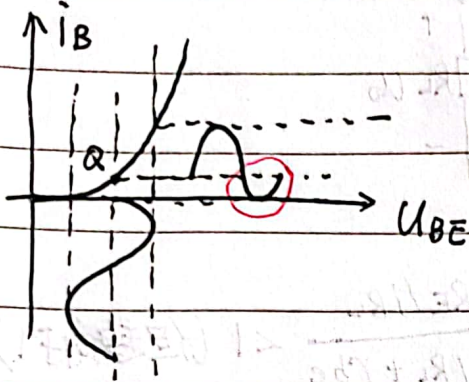 i_B
Q
U_BE